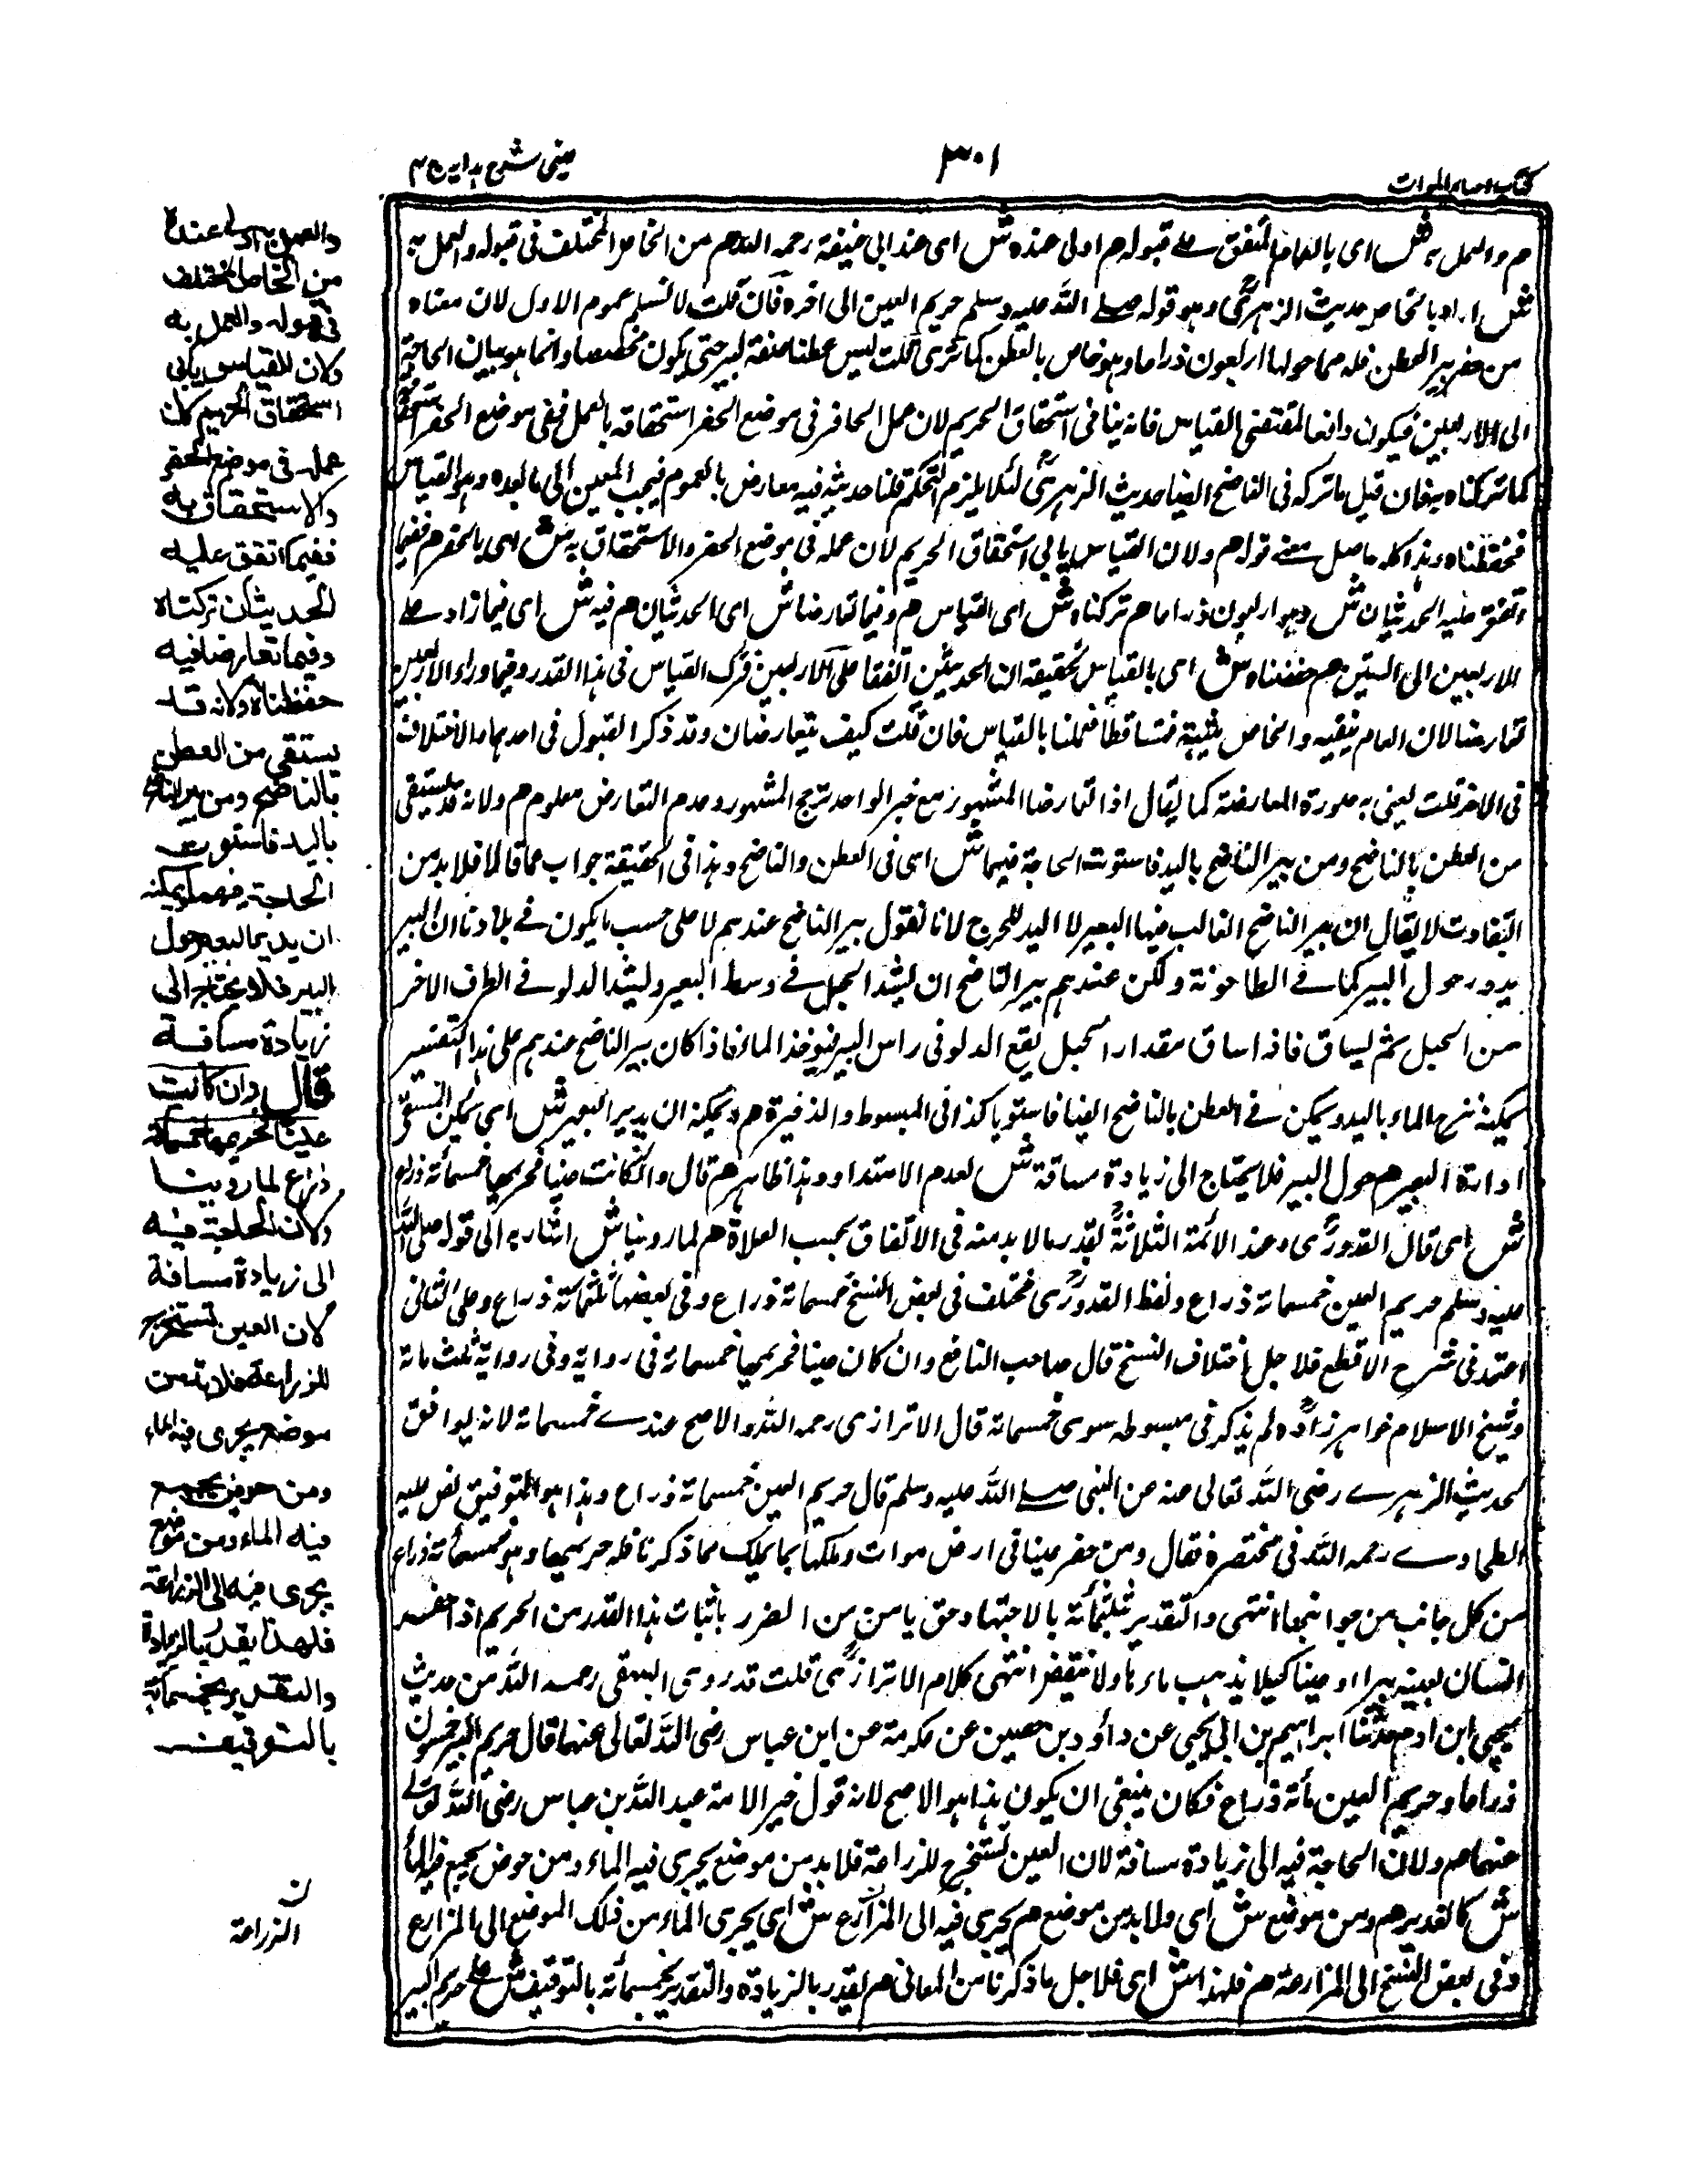 كتاب احياء الموات
٣٠١
عینی شرح ہدایہ ج ٤
م والعمل به ش اى بالعام المتفق على قبوله م اولى عنده ش اى عند ابى حنيفة رحمه الله م من الخاص المختلف فى قبوله والعمل به
ش اراد بالخاص حديث الزهرى وهو قوله صلى الله عليه وسلم حريم العين الى اخره فان قلت لا نسلم عموم الاول لان معناه
من حفر بير العطن فله مما حولها اربعون ذراعا وهو خاص بالعطن كما ترى قلت ليس عطنا صفة لبير حتى يكون مخصصا وانما هو بيان الحاجة
الى الاربعين فيكون دافعا لمقتضى القياس فانه ينافى استحقاق الحريم لان عمل الحافر فى موضع الحفر استحقاقه بالعمل ففى موضع الحفر استحق
كما تركناه به فان قيل ما تركه فى الناضح ايضا حديث الزهرى لئلا يلزم التحكم قلنا حديثه فيه معارض بالعموم فيجب المصير الى ما بعده وهو القياس
فحفظناه وهذا كله حاصل معنى قوله م ولان القياس يابى استحقاق الحريم لان عمله فى موضع الحفر والاستحقاق به ش اى بالحفر م ففيما
اتفق عليه الحديثان ش وهو اربعون ذراعا م تركناه ش اى القياس م وفيما تعارضا ش اى الحديثان م فيه ش اى فيما زاد على
الاربعين الى الستين م حفظناه ش اى بالقياس تحقيقه ان الحديثين اتفقا على الاربعين فترك القياس فى هذا القدر وفيما وراء الاربعين
تعارضا لان العام ينفيه والخاص يثبته فتساقطا فعملنا بالقياس فان قلت كيف يتعارضان وقد ذكر القبول فى احدهما والاختلاف
فى الاخر قلت يعنى به صورة المعارضة كما يقال اذا تعارضا المشهور مع خبر الواحد ترجح المشهور وعدم التعارض معلوم م ولانه قد يستقى
من العطن بالناضح ومن بير الناضح باليد فاستوت الحاجة فيهما ش اى فى العطن والناضح وهذا فى الحقيقة جواب عما قالا فلا بد من
التفاوت لا يقال ان بير الناضح الغالب فيها البعير لا اليد للحرج لانا نقول بير الناضح عندهم لا على حسب ما يكون فى بلادنا ان البير
يدور حول البير كما فى الطاحونة ولكن عندهم بير الناضح ان يشد الحبل فى وسط البعير ويشد الدلو فى الطرف الاخر
من الحبل ثم يساق فاذا ساق مقدار الحبل يقع الدلو فى راس البير فيؤخذ الماء فاذا كان بير الناضح عندهم على هذا التفسير
يمكنه نزح الماء باليد ويمكن فى العطن بالناضح ايضا فاستويا كذا فى المبسوط والذخيرة م ويمكنه ان يدير البعير ش اى يمكن المستقى
ادارة البعير م حول البير فلا يحتاج الى زيادة مسافة ش لعدم الامتداد وهذا ظاهر م قال وان كانت عينا فحريمها خمسمائة ذراع
ش اى قال القدورى وعند الائمة الثلاثة بقدر ما لا بد منه فى الاتفاق بحسب العادة م لما روينا ش اشار به الى قوله صلى الله
عليه وسلم حريم العين خمسمائة ذراع ولفظ القدورى مختلف فى بعض النسخ خمسمائة ذراع وفى بعضها ثلثمائة ذراع وعلى الثانى
اعتمد فى شرح الاقطع فلاجل اختلاف النسخ قال صاحب النافع وان كان عينا فحريمها خمسمائة فى رواية وفى رواية ثلث مائة
وشيخ الاسلام خواهر زاده لم يذكر فى مبسوطه سوى خمسمائة قال الاترازى رحمه الله والاصح عندى خمسمائة لانه يوافق
لحديث الزهرى رضى الله تعالى عنه عن النبى صلى الله عليه وسلم قال حريم العين خمسمائة ذراع وهذا هو التوفيق نص عليه
الطحاوى رحمه الله فى مختصره فقال ومن حفر عينا فى ارض موات وملكها بما يملك مما ذكرنا فله حريمها وهو خمسمائة ذراع
من كل جانب من جوانبها انتهى والتقدير بثلثمائة بالاجتهاد حق يامن من الضرر باثبات هذا القدر من الحريم اذا حفر
انسان بعينه بيرا او عينا كيلا يذهب ماءها ولا ينتقض انتهى كلام الاترازى قلت قد روى البيهقى رحمه الله من حديث
يحيى ابن ادم حدثنا ابراهيم بن ابى يحيى عن داؤد بن حصين عن عكرمة عن ابن عباس رضى الله تعالى عنهما قال حريم البير خمسون
ذراعا وحريم العين مائة ذراع فكان ينبغى ان يكون هذا هو الاصح لانه قول خير الامة عبد الله بن عباس رضى الله تعالى
عنهما م ولان الحاجة فيه الى زيادة مسافة لان العين تستخرج للزراعة فلا بد من موضع يجرى فيه الماء ومن حوض يجمع فيه الماء
ش كالغدير م ومن موضع ش اى ولا بد من موضع م يجرى فيه الى المزارع ش اى يجرى الماء من ذلك الموضع الى المزارع
وفى بعض النسخ الى المزارعة م فلهذا ش اى فلاجل ما ذكرنا من المعانى م يقدر بالزيادة والتقدير بخمسمائة بالتوقيف ش على حريم البير
والعمل به اولى عنده
من الخاص المختلف
فى قبوله والعمل به
ولان القياس يابى
استحقاق الحريم لان
عمله فى موضع الحفر
والاستحقاق به
ففيما اتفق عليه
الحديثان تركناه
وفيما تعارضا فيه
حفظناه ولانه قد
يستقى من العطن
بالناضح ومن بير الناضح
باليد فاستوت
الحاجة فيهما ويمكنه
ان يدير البعير حول
البير فلا يحتاج الى
زيادة مسافة
قال وان كانت
عينا فحريمها خمسمائة
ذراع لما روينا
ولان الحاجة فيه
الى زيادة مسافة
لان العين تستخرج
للزراعة فلا بد من
موضع يجرى فيه الماء
ومن حوض يجمع
فيه الماء ومن موضع
يجرى فيه الى الزراعة
فلهذا يقدر بالزيادة
والتقدير بخمسمائة
بالتوقيف
ن
الزراعة